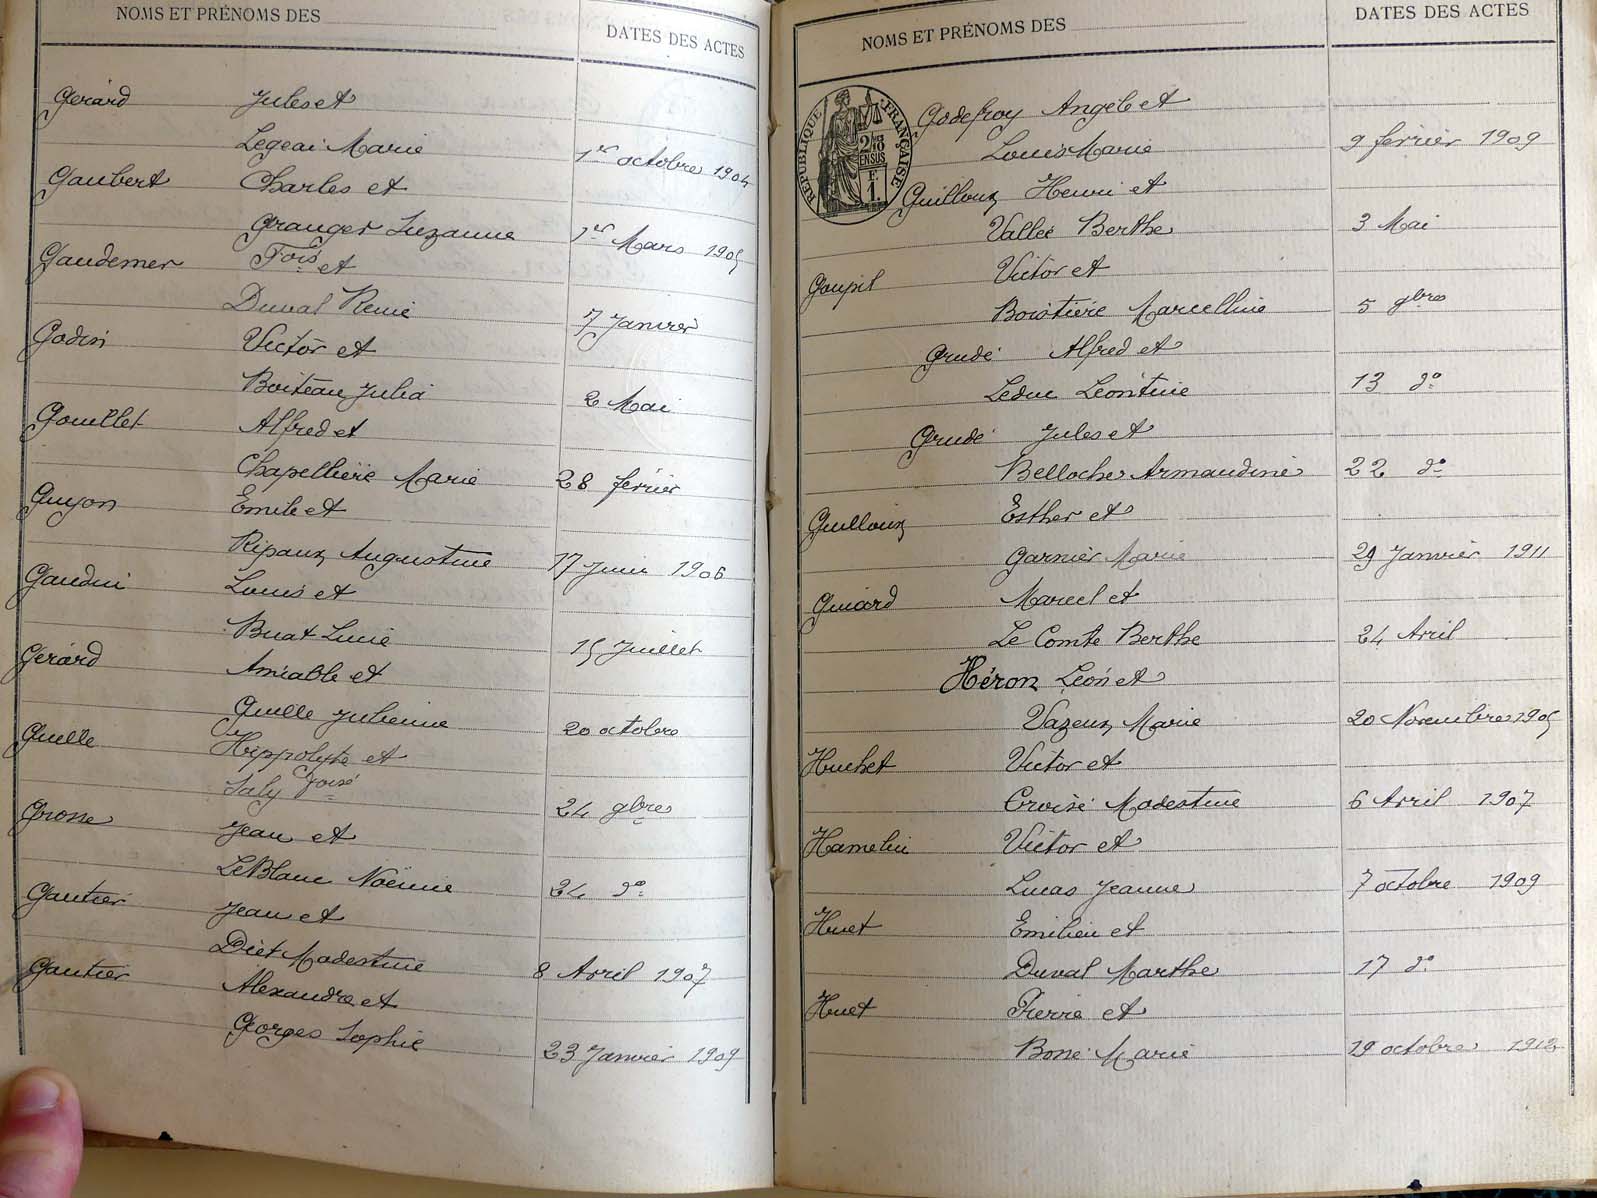 NOMS ET PRÉNOMS DES DATES DES ACTES
Gérard Jules et
Legeai Marie 1er octobre 1904
Gaubert Charles et
Granger Suzanne 1er Mars 1905
Gaudemer Fois et
Duval Renée 7 Janvier
Godin Victor et
Boiteau Julia 2 Mai
Gouillet Alfred et
Chapellière Marie 28 février
Guyon Emile et
Ripaux Augustine 17 Juin 1906
Gaudin Louis et
Buat Lucie 15 Juillet
Gérard Amiable et
Guelle Julienne 20 octobre
Guelle Hippolyte et
Saly Foise 24 9bres
Grosse Jean et
LeBlanc Noëmie 24 do
Gautier Jean et
Diet Modestine 8 Avril 1907
Gautier Alexandre et
Georges Sophie 23 Janvier 1909
NOMS ET PRÉNOMS DES DATES DES ACTES
RÉPUBLIQUE FRANÇAISE
2/10
EN SUS
F.
1.
Godefroy Angèle et
Louis Marie 9 février 1909
Guilloux Henri et
Vallée Berthe 3 Mai
Goupil Victor et
Boistière Marcelline 5 9bres
Grudé Alfred et
Leduc Léontine 13 do
Grudé Jules et
Belloche Armandine 22 do
Guilloux Esther et
Garnier Marie 29 Janvier 1911
Guiard Marcel et
Le Comte Berthe 24 Avril
Héron Léon et
Vazeux Marie 20 Novembre 1905
Huchet Victor et
Croisé Modestine 6 Avril 1907
Hamelin Victor et
Lucas Jeanne 7 octobre 1909
Huet Emilien et
Duval Marthe 17 do
Huet Pierre et
Bone Marie 19 octobre 1912